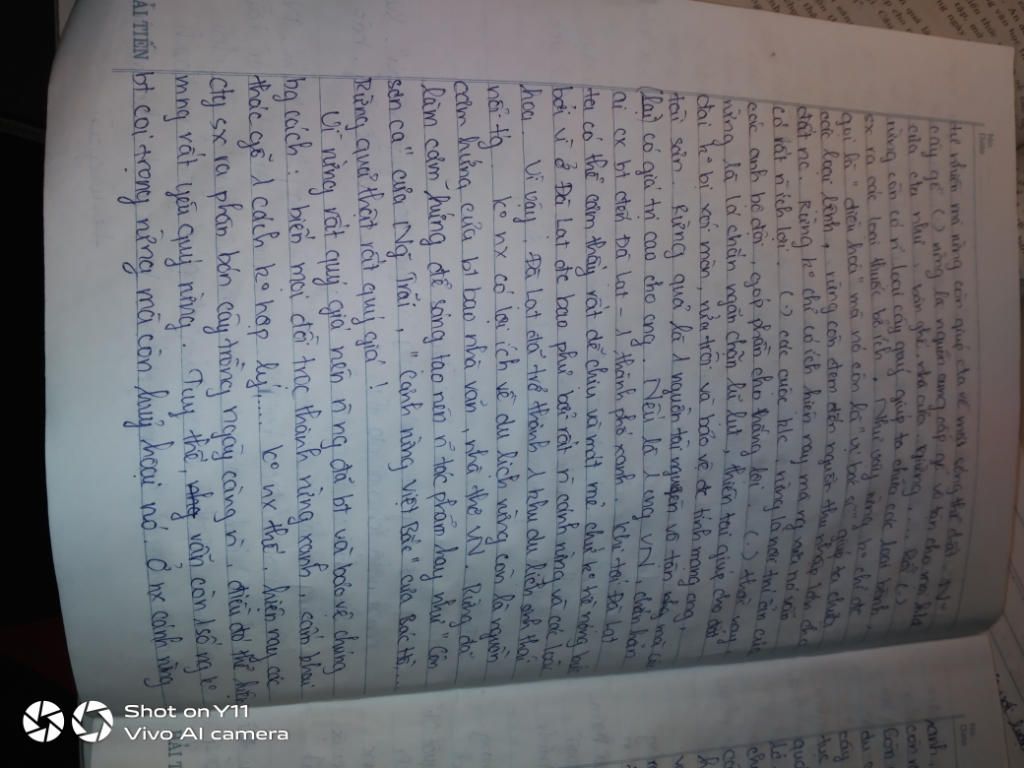 tự nhiên mà rừng còn quý giá về mọi sống thế đất. N~
cây gỗ () rừng là nguồn cung cấp gỗ vô tận cho mọi
cửa, chu như, sàn nhà, nhà cửa, giường, ... Rồi ()
rừng còn có n~ loại cây giúp ta chữa các loại bệnh,
sx ra các loại thuốc bổ ích. Như vậy rừng k° chỉ đc
gọi là "điều hoà" mà nó còn là "vị bác sĩ" giúp ta chữa
các loại bệnh, rừng còn đem đến nguồn thu nhập lớn cho
đất nc. Rừng k° chỉ có ích hiện nay mà ng xưa nó đã
có rất n~ ích lợi. () các cuộc k/c, rừng là nơi trú ẩn của
các anh bộ đội, góp phần cho thắng lợi. () thời nay
rừng là lá chắn ngăn chặn lũ lụt, thiên tai giúp cho đất
đai k° bị xói mòn, rửa trôi và bảo vệ đc tính mạng con ng,
tài sản. Rừng quả là 1 nguồn tài nguyên vô tận mà
(lại) có giá trị cao cho con ng. Nếu là 1 ng VN, chắc hẳn
ai cx bt đến Đà Lạt - 1 thành phố xanh. Khi tới Đà Lạt
ta có thể cảm thấy rất dễ chịu và mát mẻ chứ k° hề nóng bức
bởi vì ở Đà Lạt đc bao phủ bởi rất n~ cánh rừng và các loài
hoa. Vì vậy, Đà Lạt đã trở thành 1 khu du lịch sinh thái
nổi tg. K° nx có lợi ích về du lịch rừng còn là nguồn
cảm hứng của bt bao nhà văn, nhà thơ VN. Rừng đã
làm cảm hứng để sáng tạo nên n~ tác phẩm hay như "Côn
sơn ca" của Ng Trãi, "Cảnh rừng Việt Bắc" của Bác Hồ...
Rừng quả thật rất quý giá!
Vì rừng rất quý giá nên n~ ng đã bt và bảo vệ chúng
bg cách: biến mọi đồi trọc thành rừng xanh, cấm khai
thác gỗ 1 cách k° hợp lý,... k° nx thế hiện nay các
cty sx ra phân bón cây trồng ngày càng n~, điều đó thể hiện
mng rất yêu quý rừng. Tuy thế, vẫn còn 1 số ng k°
bt coi trọng rừng mà còn huỷ hoại nó. Ở nx cánh rừng
HẢI TIẾN
Shot on Y11
Vivo AI camera